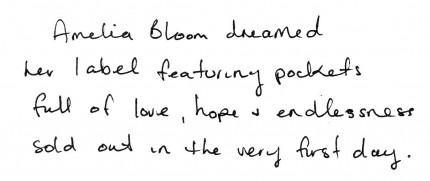 Amelia Bloom dreamed
her label featuring pockets
full of love, hope & endlessness
sold out in the very first day.